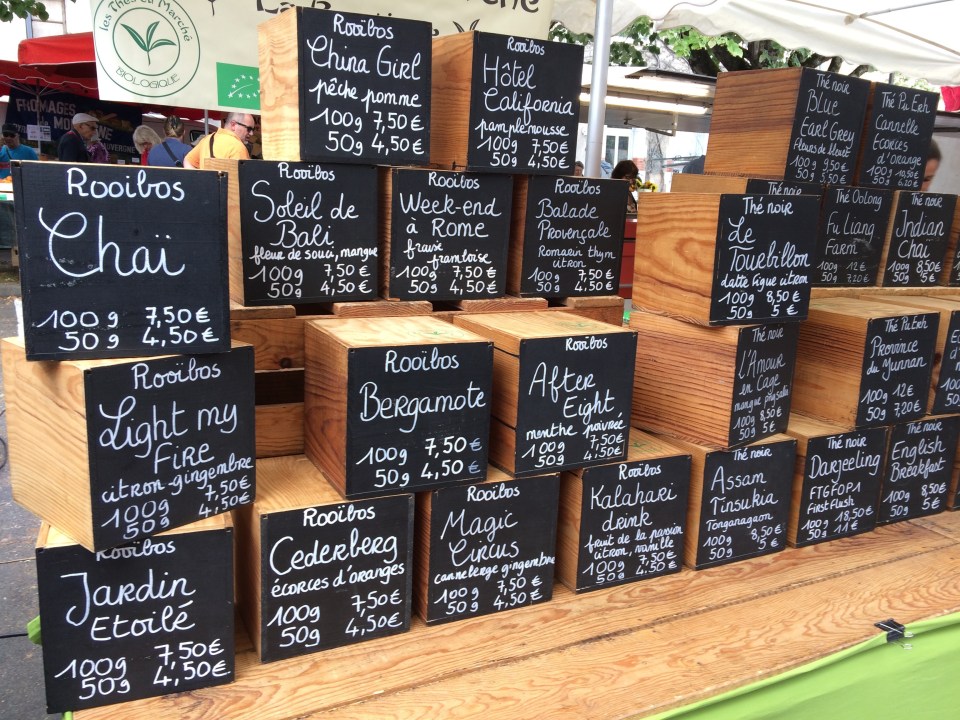 les Thés du Marché
BIOLOGIQUE
FROMAGES
Rooïbos
China Girl
pêche pomme
100g 7,50€
50g 4,50€
Rooïbos
Hôtel
California
pamplemousse
100g 7,50€
50g 4,50€
Thé noir
Blue
Earl Grey
fleurs de bleuet
Thé Pu Erh
Cannelle
Ecorces
d'orange
Rooïbos
Chaï
100g 7,50€
50g 4,50€
Rooïbos
Soleil de
Bali
fleur de souci, mangue
100g 7,50€
50g 4,50€
Rooïbos
Week-end
à Rome
fraise
framboise
100g 7,50€
50g 4,50€
Rooïbos
Balade
Provençale
Romarin thym
citron
100g 7,50€
50g 4,50€
Thé noir
Thé noir
Le
Tourbillon
datte figue citron
100g 8,50€
50g 5€
Thé Oolong
Fu Liang
Farm
100g 12€
50g 7,20€
Thé noir
Indian
Chaï
100g 8,50€
50g 5€
Rooïbos
Light my
Fire
citron-gingembre
100g 7,50€
50g 4,50€
Rooïbos
Bergamote
100g 7,50€
50g 4,50€
Rooïbos
After
Eight
menthe poivrée
100g 7,50€
50g 4,50€
Thé noir
L'Amour
en Cage
mangue physalis
100g 8,50€
50g 5€
Thé Pu Erh
Province
du Yunnan
100g 12€
50g 7,20€
Rooïbos
Jardin
Etoilé
100g 7,50€
50g 4,50€
Rooïbos
Cederberg
écorces d'oranges
100g 7,50€
50g 4,50€
Rooïbos
Magic
Circus
100g 7,50€
50g 4,50€
Rooïbos
Kalahari
drink
fruit de la passion
citron, vanille
100g 7,50€
50g 4,50€
Thé noir
Assam
Tinsukia
Tonganagaon
100g 8,50€
50g 5€
Thé noir
Darjeeling
FTGFOP1
First Flush
100g 18,50€
50g 11€
Thé noir
English
Breakfast
100g 8,50€
50g 5€